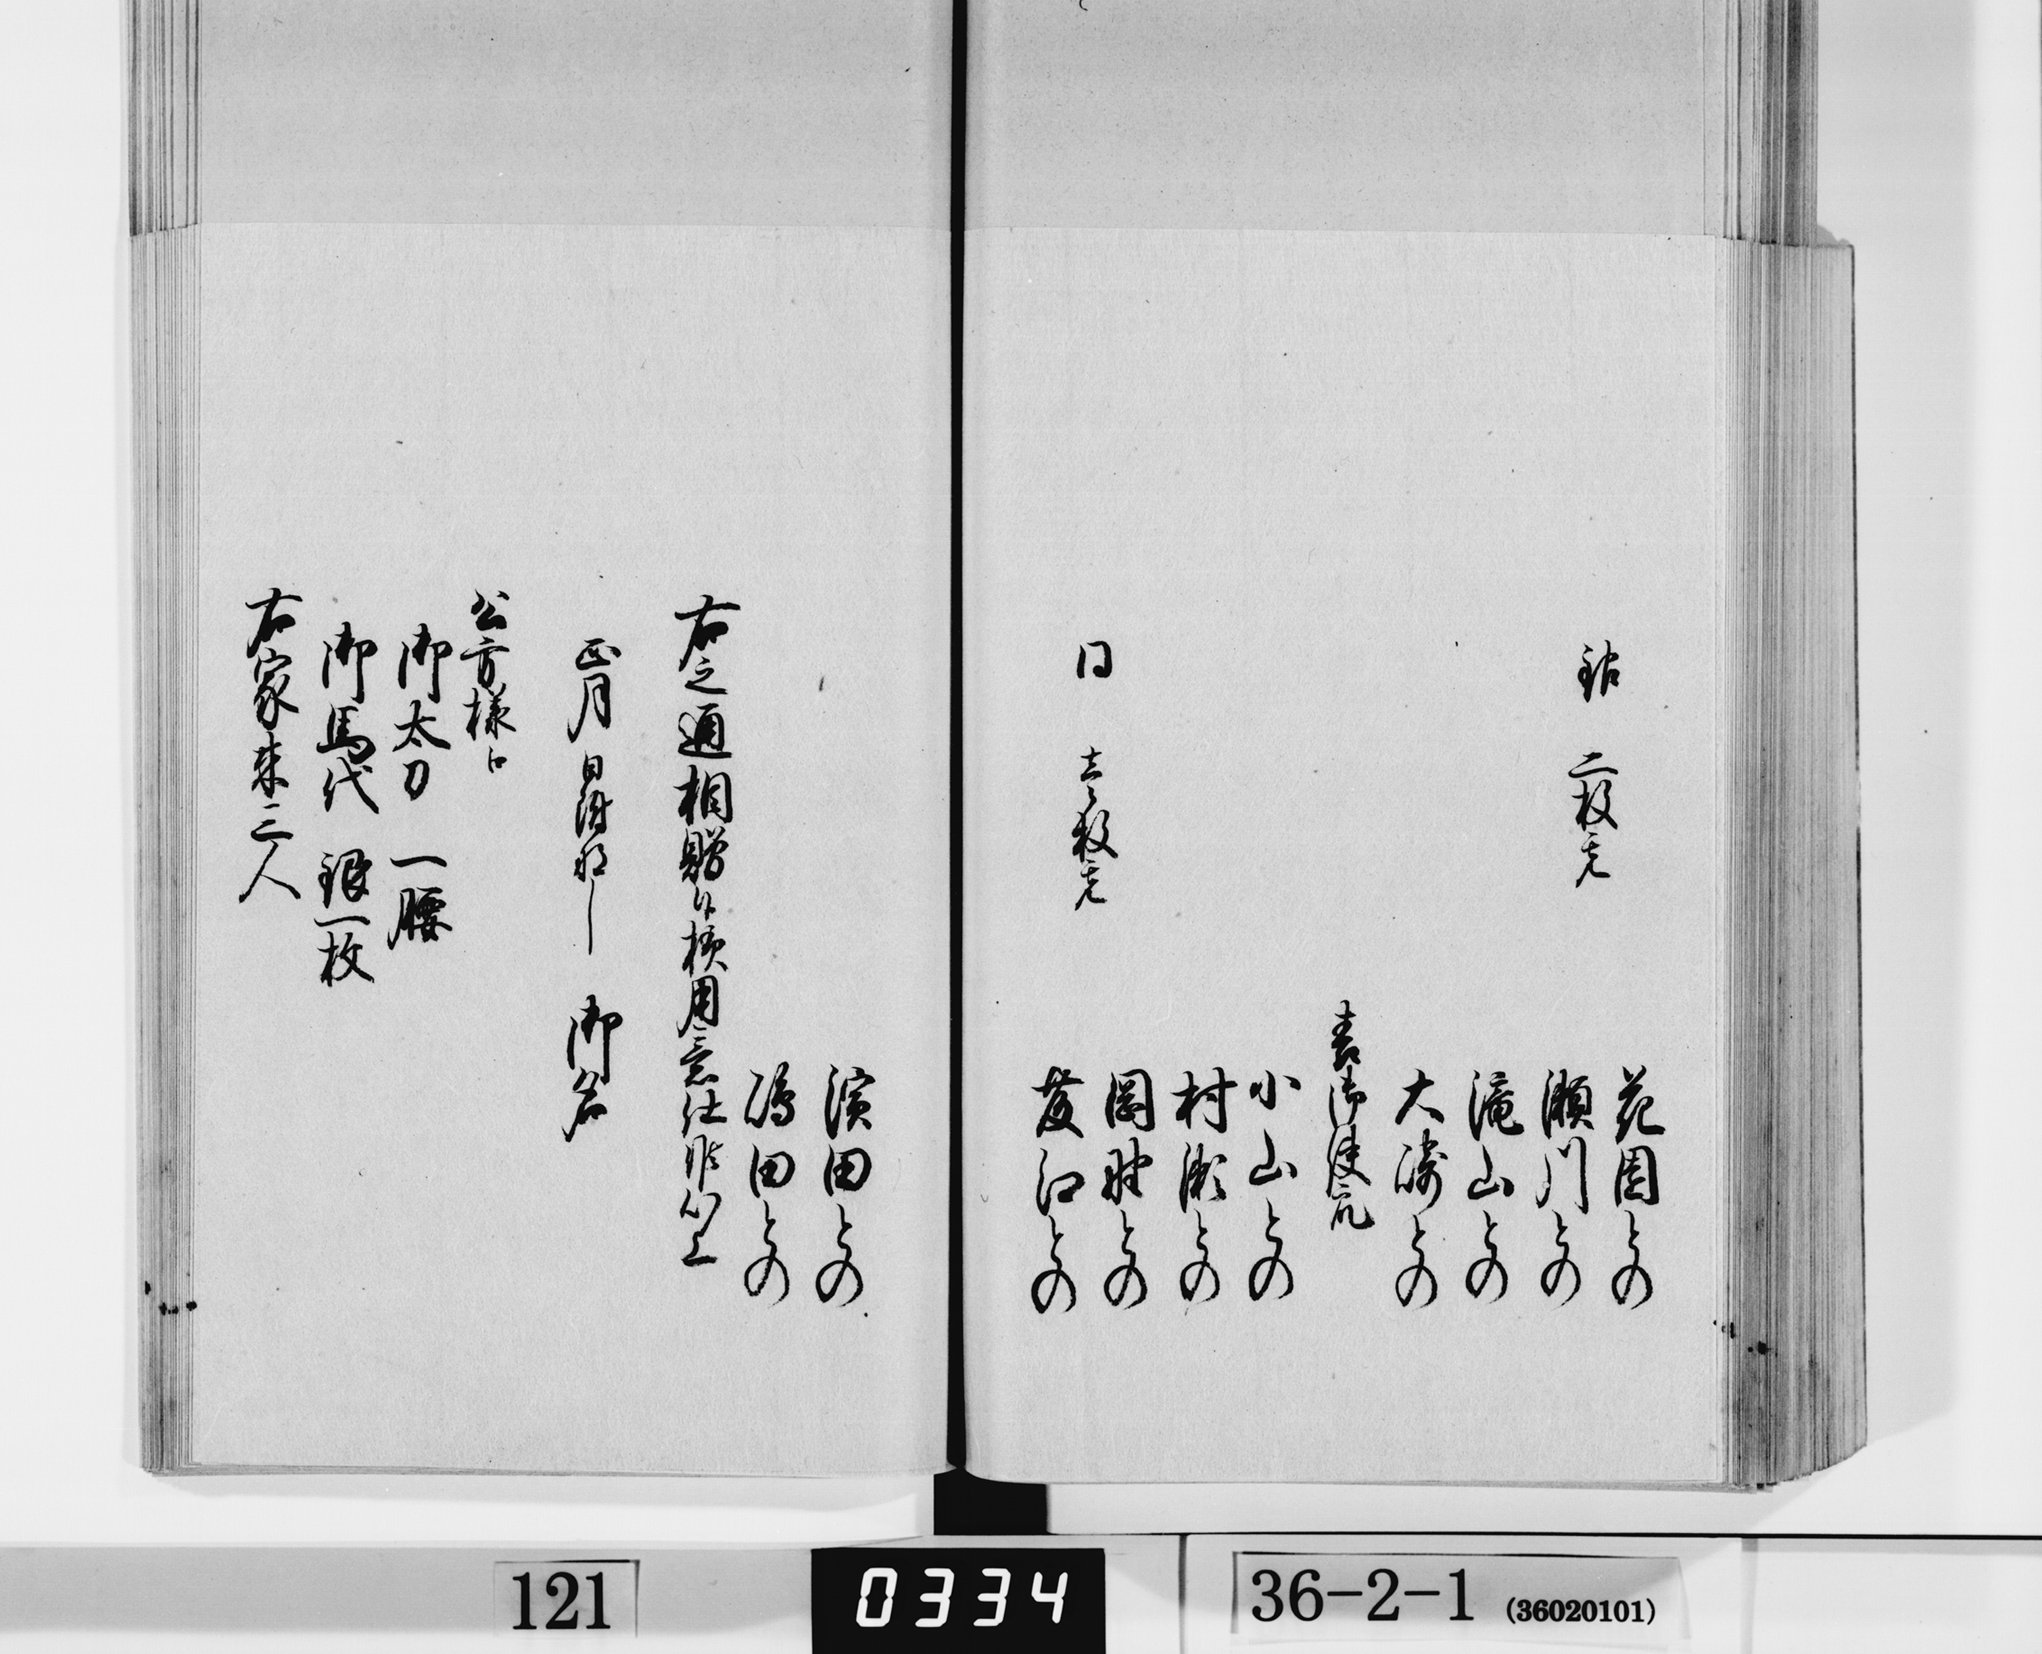 花園との
銀 二枚充 瀬川との
滝山との
大崎との
表御使衆
小山との
村瀬との
岡野との
同 壱枚充 藤江との
濱田との
嶋田との
右之通相贈候様用意仕非候以上
正月 日附なし 御名
公方様江
御太刀 一腰
御馬代 銀一枚
右家来三人
121
0334
36-2-1 (36020101)